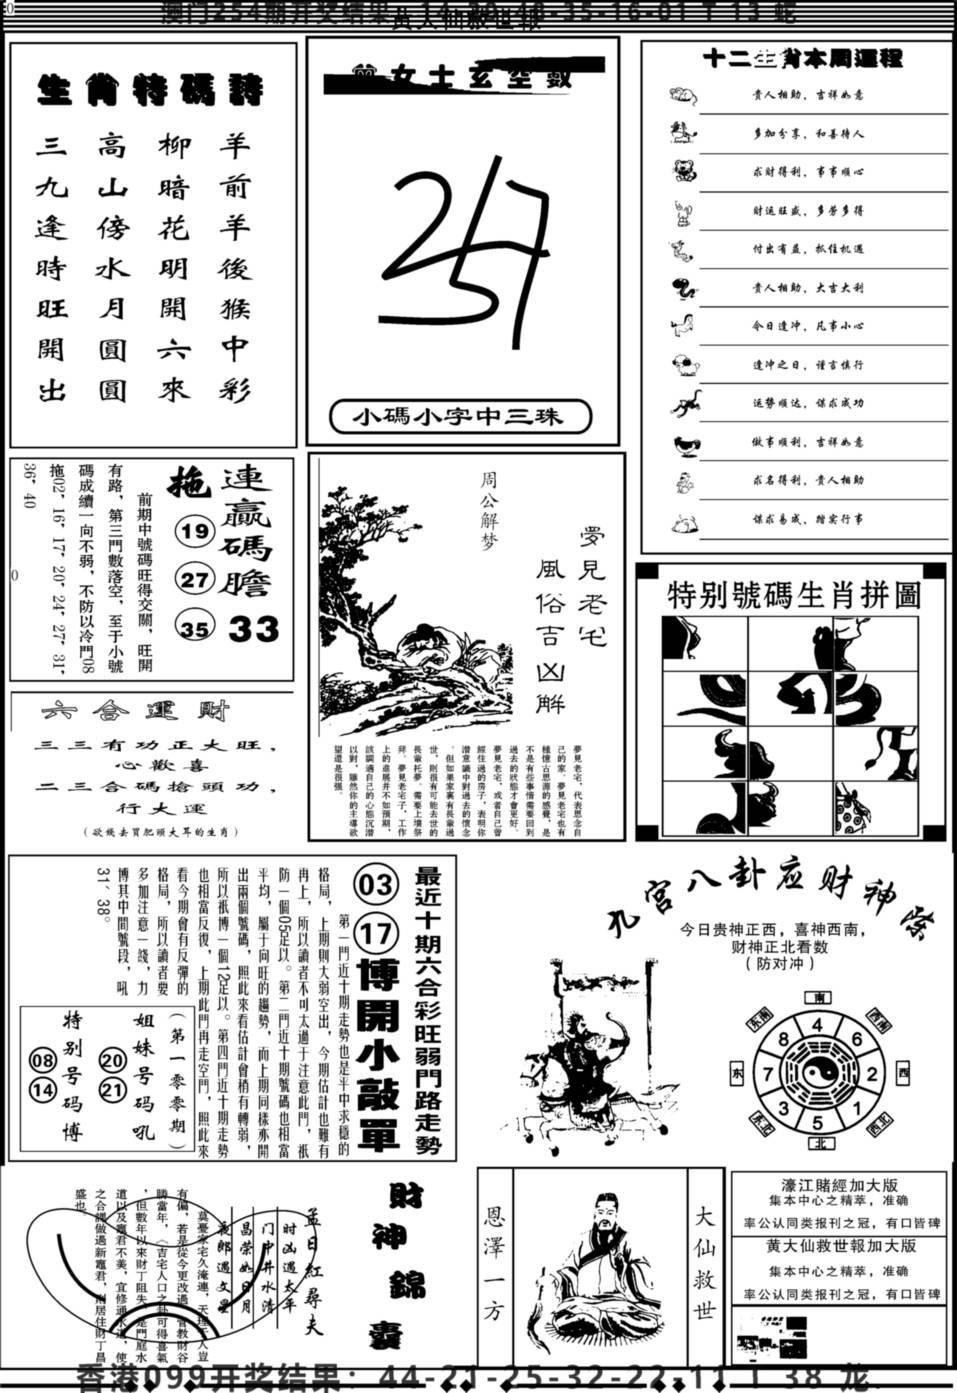 澳门254期开奖结果
35-16-01 T 13 蛇
黃大仙救世報
0
生肖特碼詩
三高柳羊
九山暗前
逢傍花羊
時水明後
旺月開猴
開圓六中
出圓來彩
曾女士玄空數
小碼小字中三珠
十二生肖本周運程
贵人相助，吉祥如意
多加分享，和善待人
求财得利，事事顺心
财运旺盛，多劳多得
付出有益，抓住机遇
贵人相助，大吉大利
今日逢冲，凡事小心
逢冲之日，谨言慎行
运势顺达，谋求成功
做事顺利，吉祥如意
求名得利，贵人相助
谋求易成，踏实行事
連贏碼膽 33
拖
19
27
35
前期中號碼旺得交關，旺開
有路，第三門數落空，至于小號
碼成續一向不弱，不防以冷門08
拖02，16，17，20，24，27，31，
36，40
0
六合運財
三三有功正大旺，
心歡喜
二三合碼搶頭功，
行大運
（欲錢去買肥頭大耳的生肖）
周公解梦
夢見老宅
風俗吉凶解
夢見老宅，代表思念自
己的家。夢見老宅也有
種憶古思源的感覺，是
不是有些事情需要回到
過去的狀態才會更好。
夢見老宅，或者自己曾
經住過的房子，表明你
潛意識中對過去的懷念
，但如果家裏有長輩過
世，則很有可能去世的
長輩托夢，需要上墳祭
拜。夢見老宅子，工作
上的進展并不如預期，
該調適自己的心態沉潛
以對，雖然你的主導欲
望還是很强。
特别號碼生肖拼圖
最近十期六合彩旺弱門路走勢
03
17
博開小敲單
第一門近十期走勢也是平中求穩的
格局，上期則大弱空出，今期估計也難有
冉上，所以讀者不可太過于注意此門，祇
防一個05足以。第二門近十期號碼也相當
平均，屬于向旺的趨勢，而上期同樣亦開
出兩個號碼，照此來看估計會稍有轉弱，
所以祇博一個12足以。第四門近十期走勢
也相當反復，上期此門冉走空門，照此來
看今期會有反彈的
格局，所以讀者要
多加注意一綫，力
博其中間號段，吼
31、38。
（第一零零期）
姐妹号码吼
20
21
特别号码博
08
14
九宫八卦应财神除
今日贵神正西，喜神西南，
财神正北看数
（防对冲）
南
东南
西南
东
西
东北
西北
北
4
8
6
7
2
3
1
5
財神錦囊
孟日紅尋夫
时凶遇太平
门中井水清
昌荣如日月
夜郎遇文星
恩澤一方
大仙救世
濠江賭經加大版
集本中心之精萃，准确
率公认同类报刊之冠，有口皆碑
黄大仙救世報加大版
集本中心之精萃，准确
率公认同类报刊之冠，有口皆碑
香港099开奖结果：44-21-25-32-22-11 T 38 龙